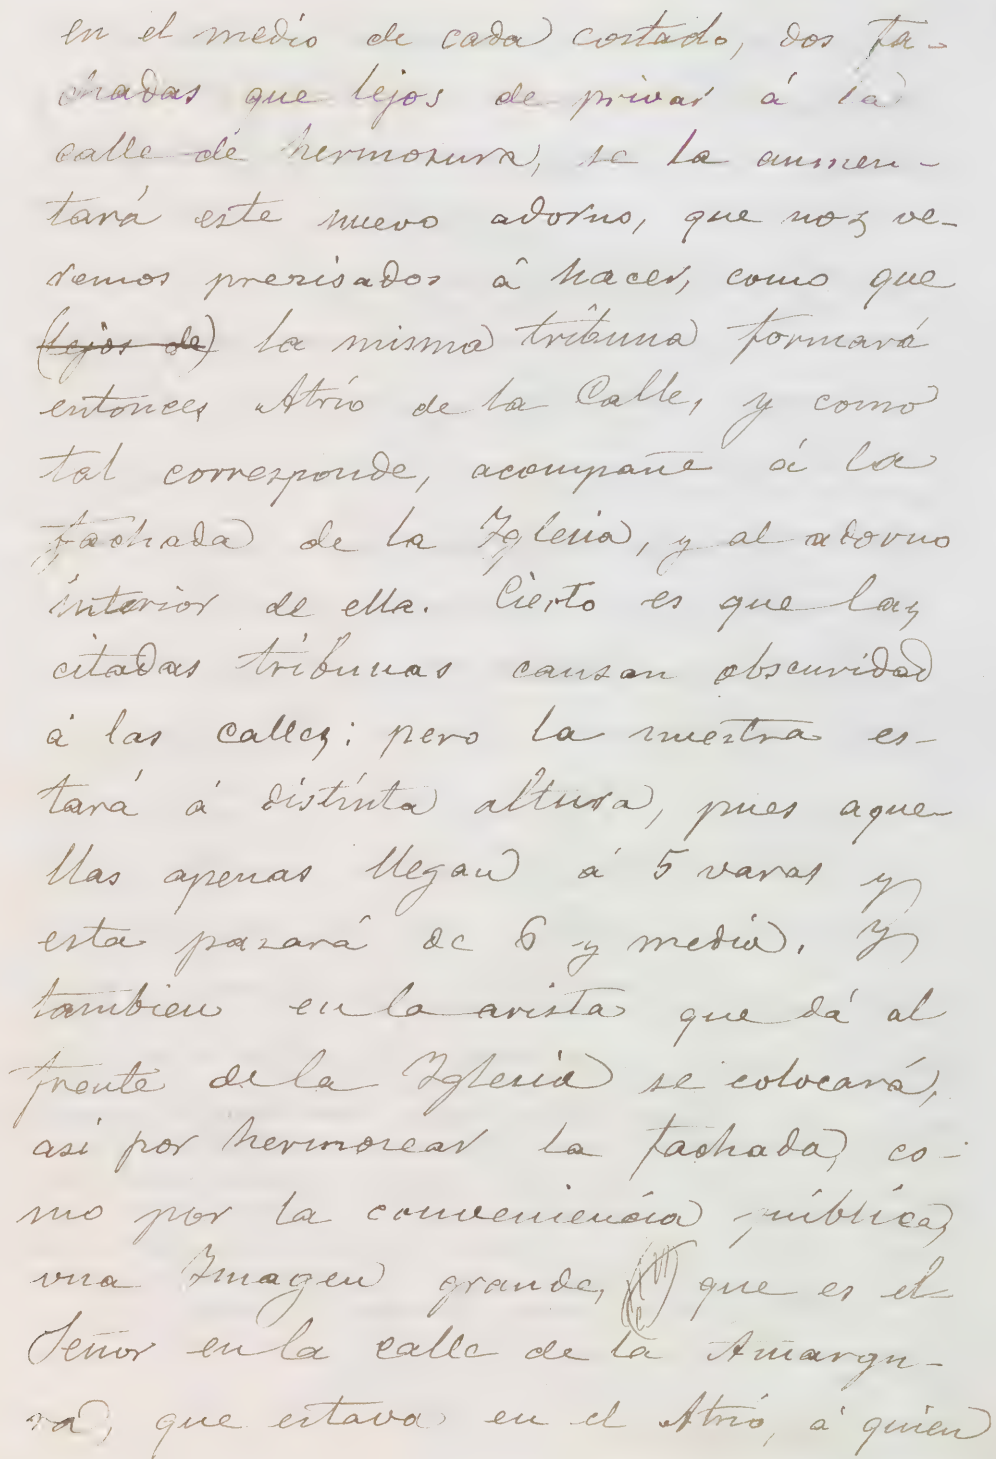 en el medio de cada costado, dos fa-
chadas que lejos de privar á la
calle de hermosura, se la aumen-
tará este nuevo adorno, que nos ve-
remos prezisados â hacer, como que
(lejos de) la misma tribuna formará
entonces Atrio de la Calle, y como
tal corresponde, acompañe á la
fachada de la Yglesia, y al adorno
interior de ella. Cierto es que las
citadas tribunas causan obscuridad
á las calles; pero la nuestra es-
tará á distinta altura, pues aque-
llas apenas llegan á 5 varas y
esta pasará de 6 y media. Y
tambien en la arista que dá al
frente de la Yglesia se colocará,
asi por hermosear la fachada, co-
mo por la conveniencia pública,
una Ymagen grande, que es el
Señor en la calle de la Amargu-
ra, que estava en el Atrio, á quien